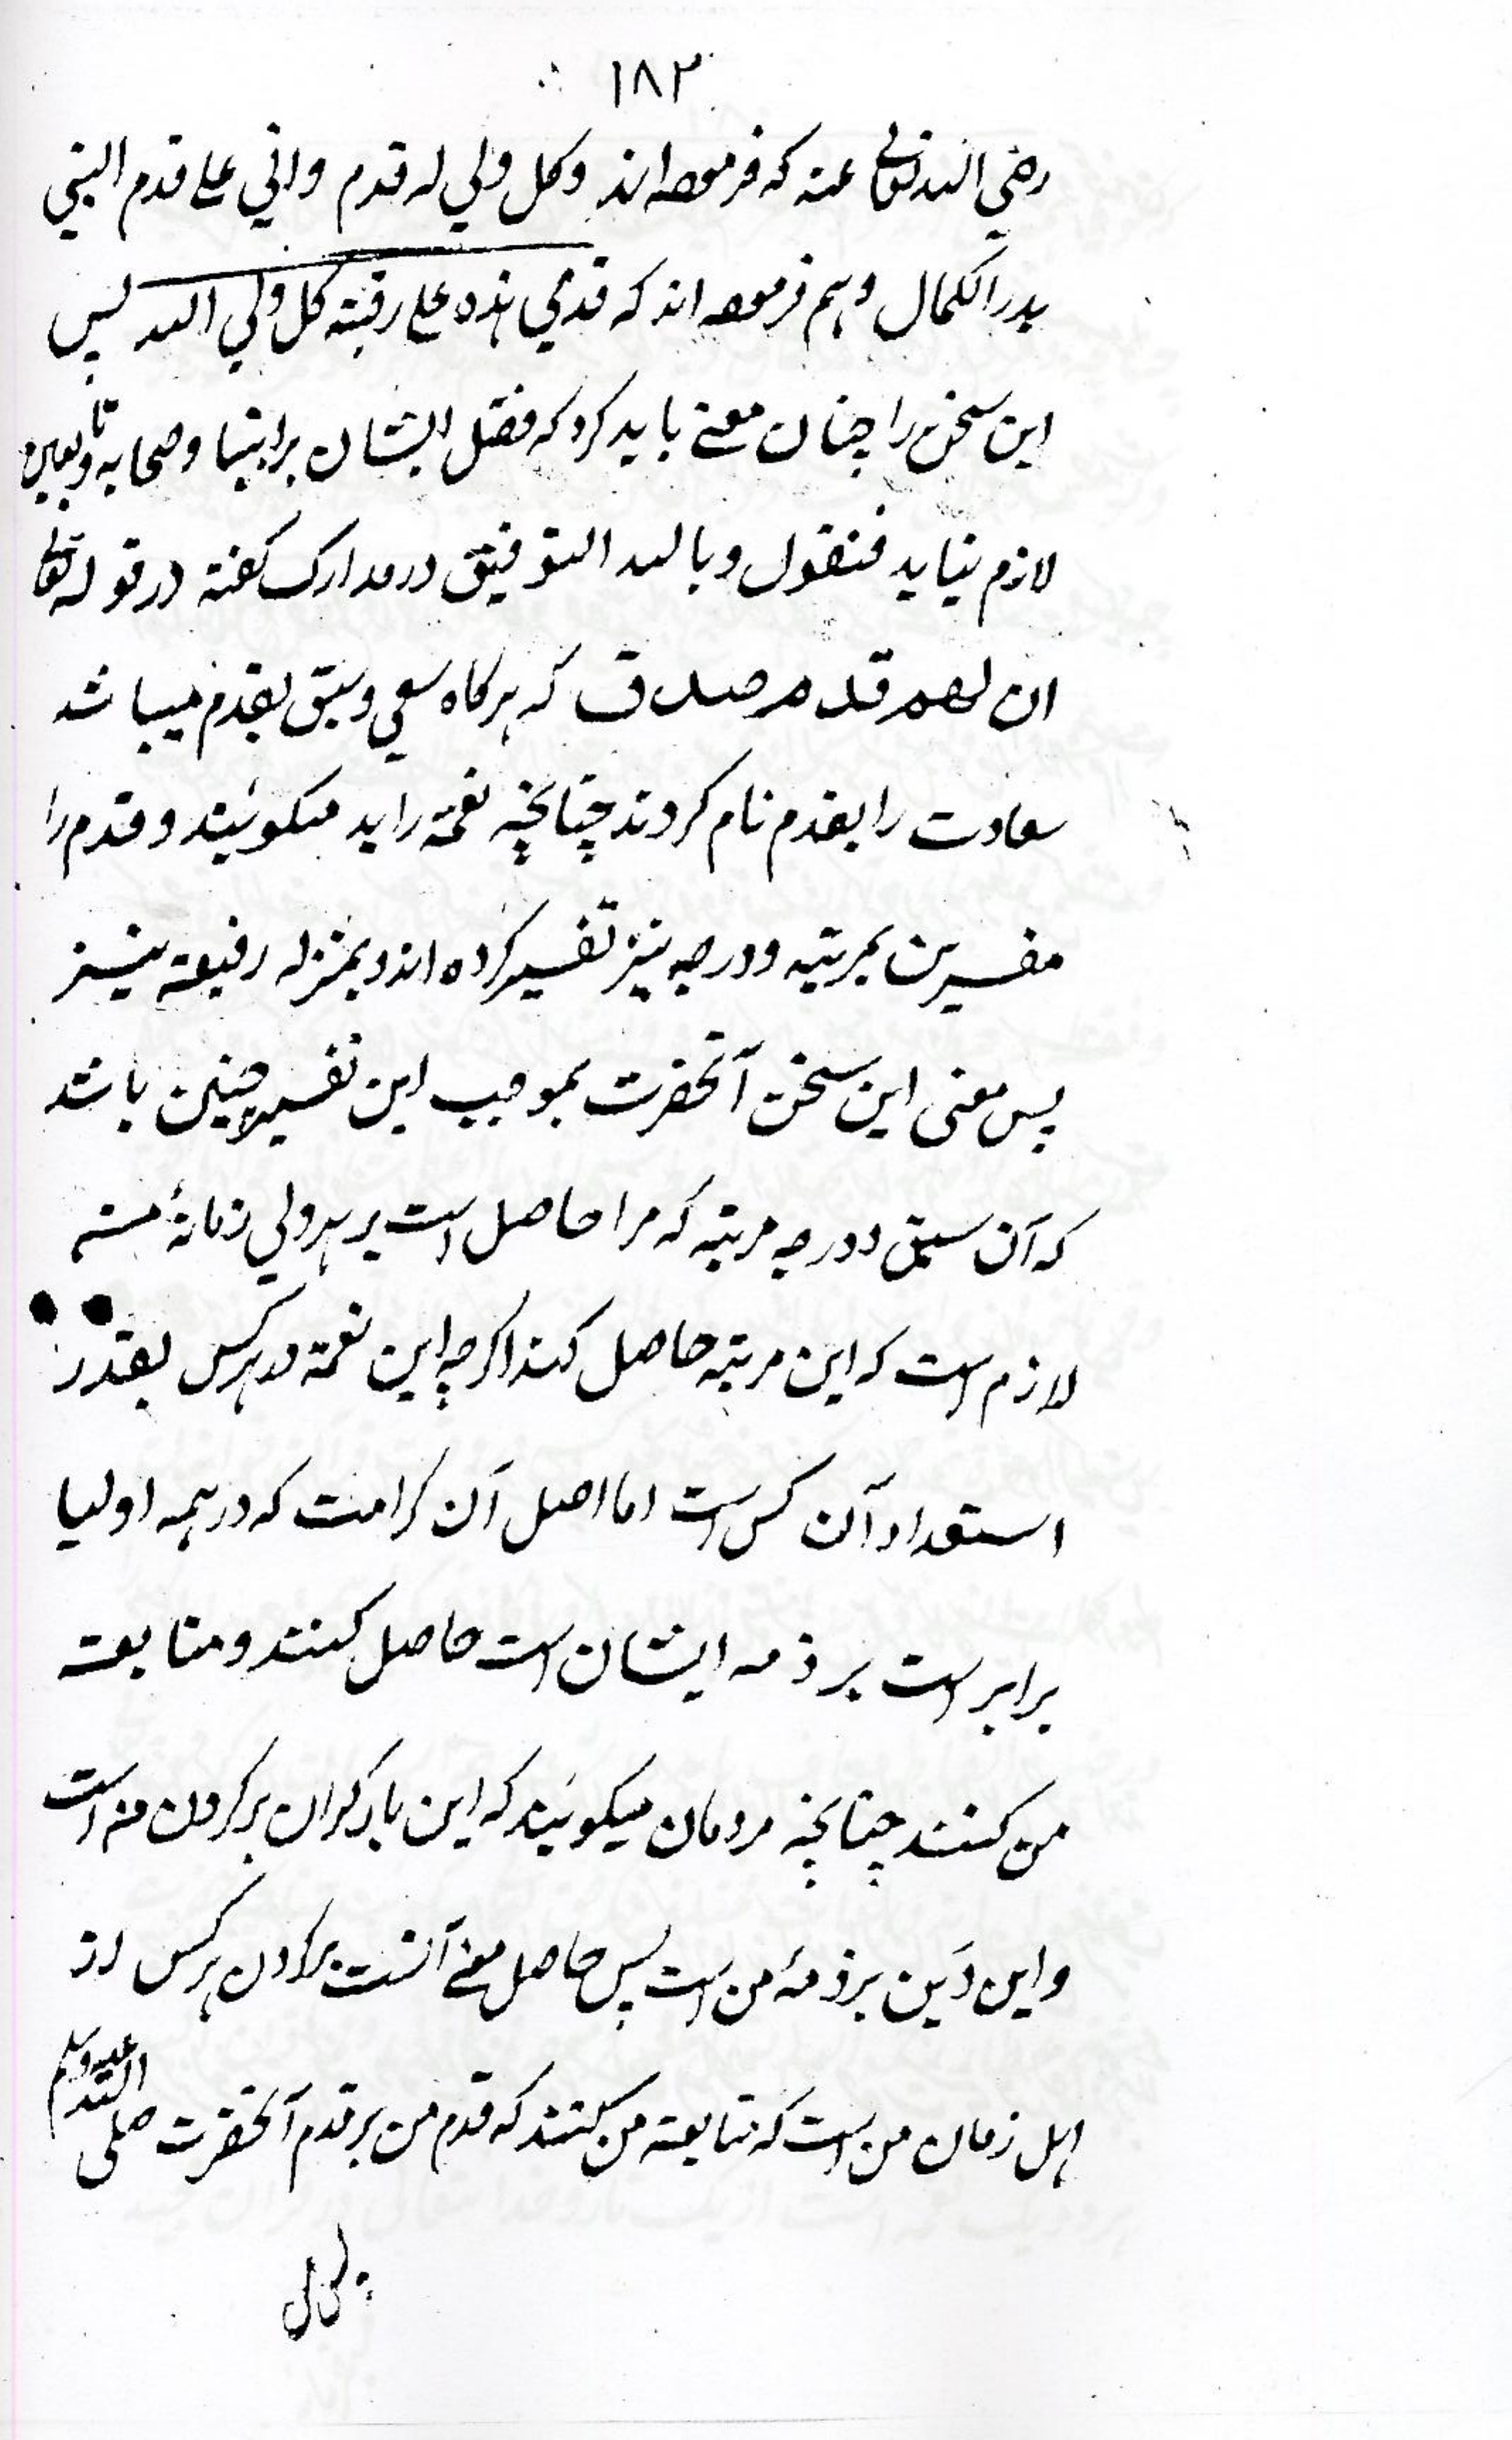 ۱۸۳
رضي الله تعالى عنه که فرموده اند وکل ولي له قدم واني على قدم النبي
بدر الکمال وهم فرموده اند که قدمي هذه على رقبة کل ولي الله پس
این سخن را چنان معنے باید کرد که فضل ایشان بر انبیا وصحابه وتابعین
لازم نیاید فنقول وبالله التوفیق در مدارک گفته در قوله تعالى
ان لهم قدم صدق که هرگاه سعی وسبق بقدم میباشد
سعادت را بقدم نام کردند چنانچه نعمة را ید میگوئیند وقدم را
مفسرین بمرتبه ودرجه نیز تفسیر کرده اند وبمنزله رفیعة نیز
پس معنی این سخن آنحضرت بموجب این تفسیر چنین باشد
که آن سبق ودرجه مرتبه که مرا حاصل است بر هر ولي زمانۀ
لازم است که این مرتبه حاصل کند اگرچه این نعمة در هرکس بقدر
استعداد آن کس است اما اصل آن کرامت که در همه اولیا
برابر است بر ذمه ایشان است حاصل کنند ومتابعة
من کنند چنانچه مردمان میگوئیند که این بار گران بر گردن من است
واین دَین بر ذمۀ من است پس حاصل معنے آنست بر گردن هرکس از
اهل زمان من است که متابعة من کنند که قدم من بر قدم آنحضرت صلى الله علیه وسلم